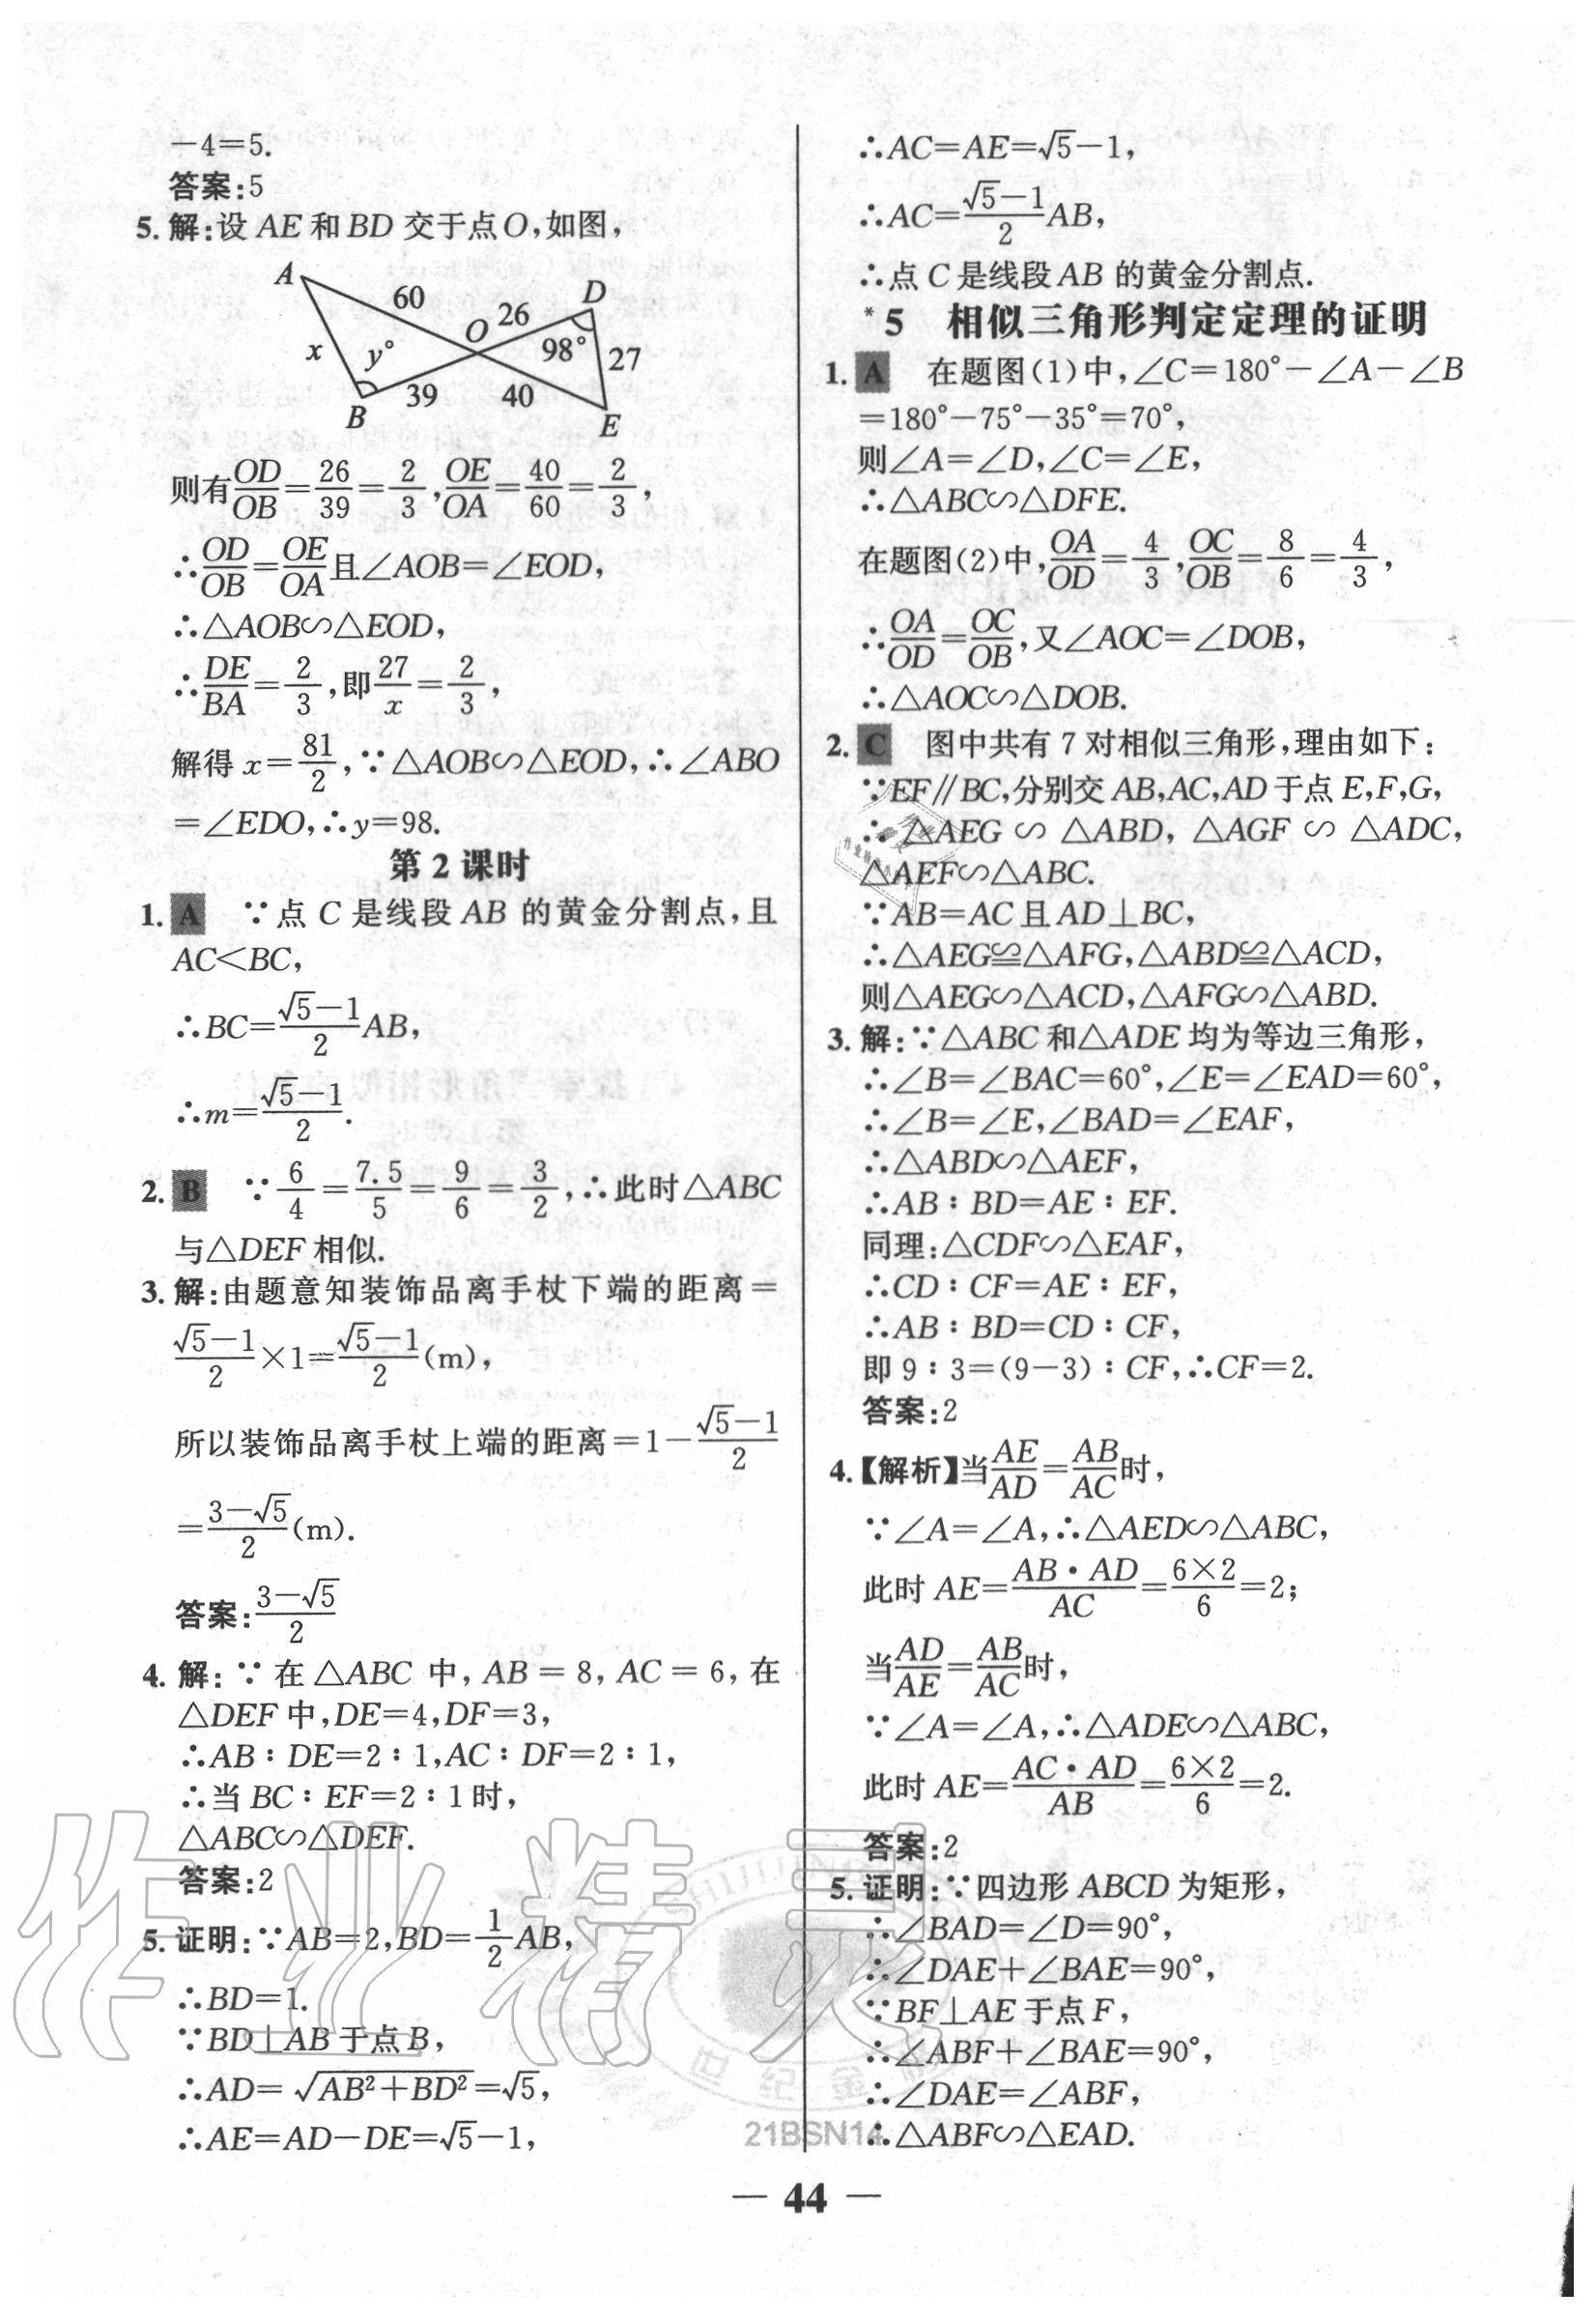 -4=5.
答案:5
5. 解:设 AE 和 BD 交于点 O,如图,
A
60
26
D
O
x
y°
98°
27
B
39
40
E
则有OD/OB=26/39=2/3,OE/OA=40/60=2/3,
∴OD/OB=OE/OA且∠AOB=∠EOD,
∴△AOB∽△EOD,
∴DE/BA=2/3,即27/x=2/3,
解得 x=81/2,∵△AOB∽△EOD,∴∠ABO
=∠EDO,∴y=98.
第 2 课时
1. A ∵点 C 是线段 AB 的黄金分割点,且
AC<BC,
∴BC=(√5-1)/2 AB,
∴m=(√5-1)/2.
2. B ∵6/4=7.5/5=9/6=3/2,∴此时△ABC
与△DEF 相似.
3. 解:由题意知装饰品离手杖下端的距离=
(√5-1)/2×1=(√5-1)/2(m),
所以装饰品离手杖上端的距离=1-(√5-1)/2
=(3-√5)/2(m).
答案:(3-√5)/2
4. 解:∵在△ABC 中,AB=8,AC=6,在
△DEF 中,DE=4,DF=3,
∴AB∶DE=2∶1,AC∶DF=2∶1,
∴当 BC∶EF=2∶1时,
△ABC∽△DEF.
答案:2
5. 证明:∵AB=2,BD=1/2 AB,
∴BD=1.
∵BD⊥AB于点B,
∴AD=√(AB²+BD²)=√5,
∴AE=AD-DE=√5-1,
∴AC=AE=√5-1,
∴AC=(√5-1)/2 AB,
∴点 C 是线段 AB 的黄金分割点.
*5 相似三角形判定定理的证明
1. A 在题图(1)中,∠C=180°-∠A-∠B
=180°-75°-35°=70°,
则∠A=∠D,∠C=∠E,
∴△ABC∽△DFE.
在题图(2)中,OA/OD=4/3,OC/OB=8/6=4/3,
∴OA/OD=OC/OB,又∠AOC=∠DOB,
∴△AOC∽△DOB.
2. C 图中共有 7 对相似三角形,理由如下:
∵EF∥BC,分别交 AB,AC,AD 于点 E,F,G,
∴△AEG∽△ABD,△AGF∽△ADC,
△AEF∽△ABC.
∵AB=AC且AD⊥BC,
∴△AEG≌△AFG,△ABD≌△ACD,
则△AEG∽△ACD,△AFG∽△ABD.
3. 解:∵△ABC 和△ADE 均为等边三角形,
∴∠B=∠BAC=60°,∠E=∠EAD=60°,
∴∠B=∠E,∠BAD=∠EAF,
∴△ABD∽△AEF,
∴AB∶BD=AE∶EF.
同理:△CDF∽△EAF,
∴CD∶CF=AE∶EF,
∴AB∶BD=CD∶CF,
即 9∶3=(9-3)∶CF,∴CF=2.
答案:2
4.【解析】当AE/AD=AB/AC时,
∵∠A=∠A,∴△AED∽△ABC,
此时 AE=AB·AD/AC=6×2/6=2;
当AD/AE=AB/AC时,
∵∠A=∠A,∴△ADE∽△ABC,
此时 AE=AC·AD/AB=6×2/6=2.
答案:2
5. 证明:∵四边形 ABCD 为矩形,
∴∠BAD=∠D=90°,
∴∠DAE+∠BAE=90°,
∵BF⊥AE 于点 F,
∴∠ABF+∠BAE=90°,
∴∠DAE=∠ABF,
∴△ABF∽△EAD.
作业精灵
世纪金
21BSN14
— 44 —